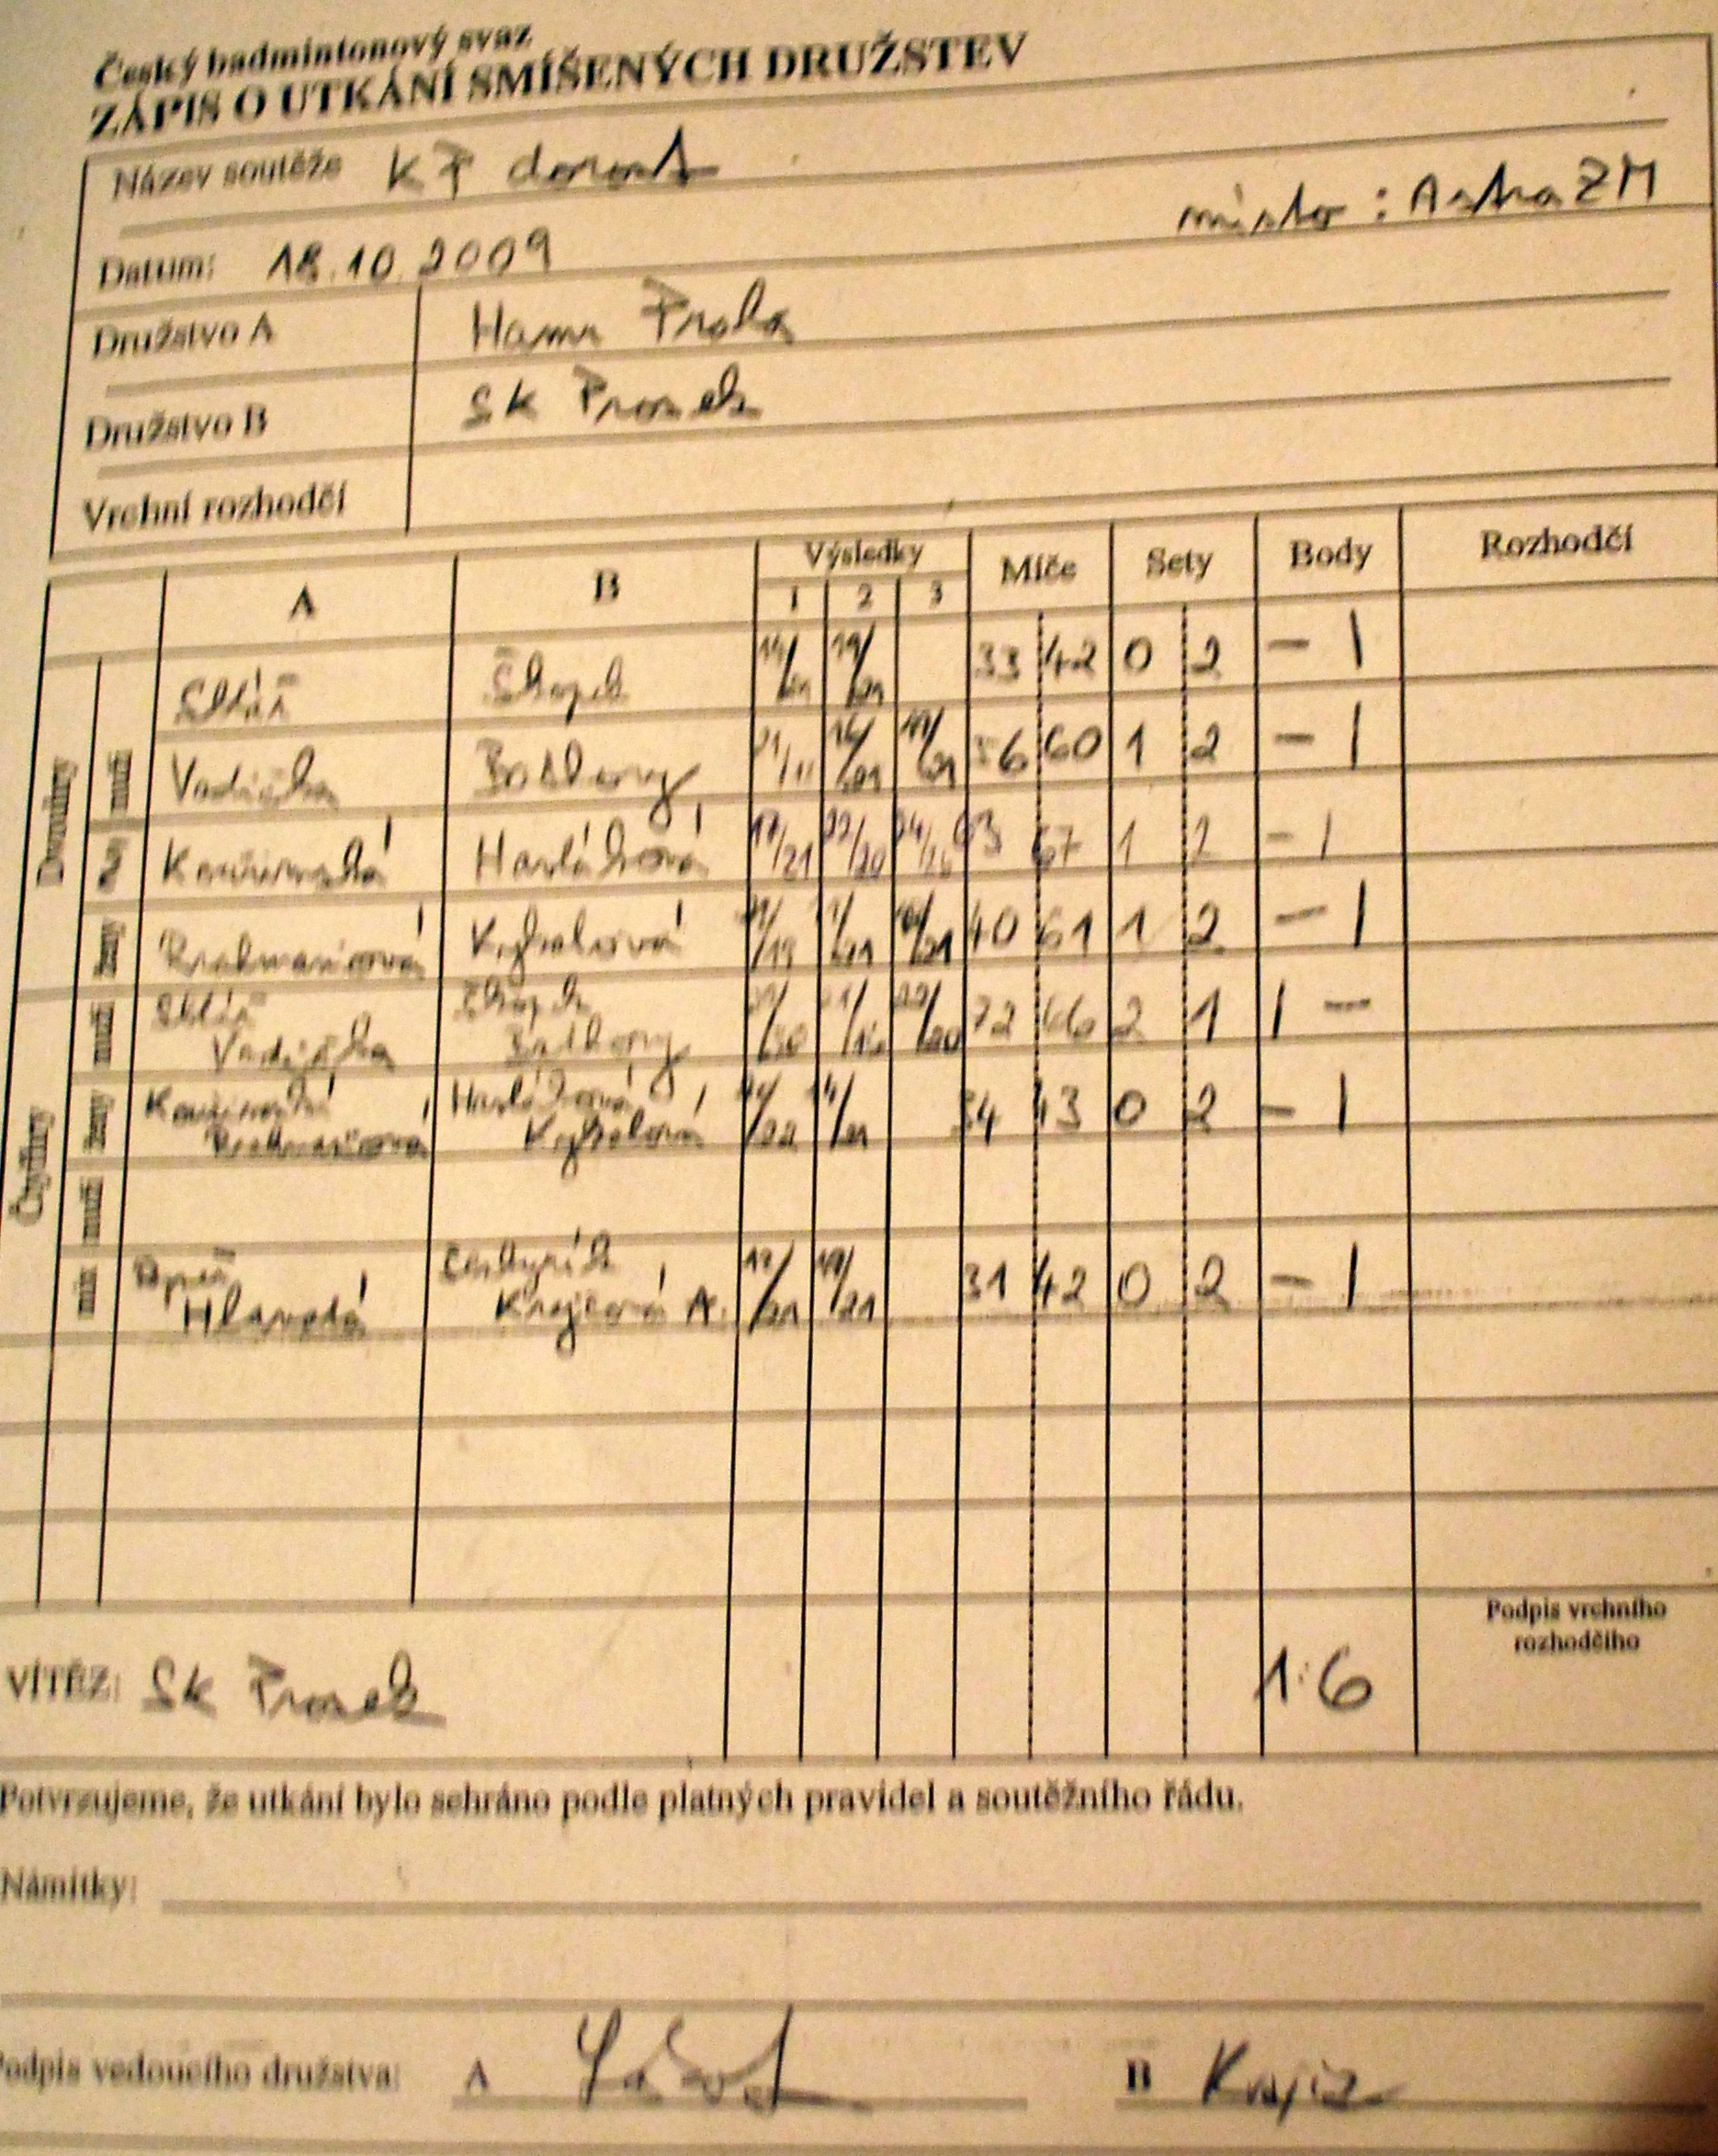 Český badmintonový svaz
ZÁPIS O UTKÁNÍ SMÍŠENÝCH DRUŽSTEV
Název soutěže KP dorost
místo: Astra ZM
Datum: 18.10.2009
Družstvo A Hamr Praha
Družstvo B SK Prosek
Vrchní rozhodčí
A B Výsledky Míče Sety Body Rozhodčí
1 2 3
Dvouhry
muži
Sklář 14/21 19/21 33 42 0 2 - 1
Vodička 21/ 16/21 19/21 56 60 1 2 - 1
ženy
Kouřimská Havláčková 17/21 22/20 24/26 63 67 1 2 - 1
ženy
40 61 1 2 - 1
Čtyřhry
muži
Sklář
Vodička 22/20 72 66 2 1 1 -
ženy
Kouřimská Havláčková
/22 /21 34 43 0 2 - 1
muži
mix
Hlavatá Krajčová A. 12/21 19/21 31 42 0 2 - 1
VÍTĚZ: SK Prosek 1:6
Podpis vrchního
rozhodčího
Potvrzujeme, že utkání bylo sehráno podle platných pravidel a soutěžního řádu.
Námitky:
Podpis vedoucího družstva: A B